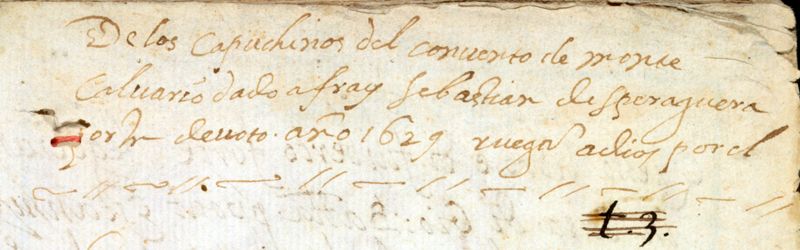 De los Capuchinos del convento de monte
Calvario dado a fray Sebastian de speraguera
por Un devoto. año 1629 ruega adios por el
t. 3.